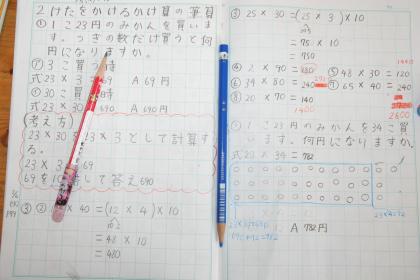 2けたをかけるかけ算の筆算
① 1こ23円のみかんを買いま
す。つぎの数だけ買うと何
円になりますか。
⑦ 3こ買う時
式 23×3=69 A 69円
30こ買う時
式 23×30=690 A 690円
(考え方)
23×3として計算す
る。
23×3 69
69を10 して答え690
③ ② ×40=(12×4)×10
=48×10
=480
③ 25×30=(25×3)×10
=75×10
=750
④ 2×40=80
⑤ 48×30=120
⑥ 34×80=240
⑦ 65×40=240
⑧ 20×70=140
1400
2600
① 1こ23円のみかんを34こ買
います。何円になりますか。
式 23×34=782
23×30=690
23×4=92
690+92=782
A 782円